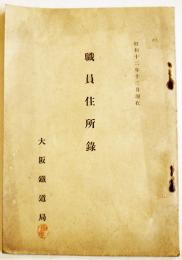 昭和十二年十二月現在
職員住所錄
大阪鐵道局